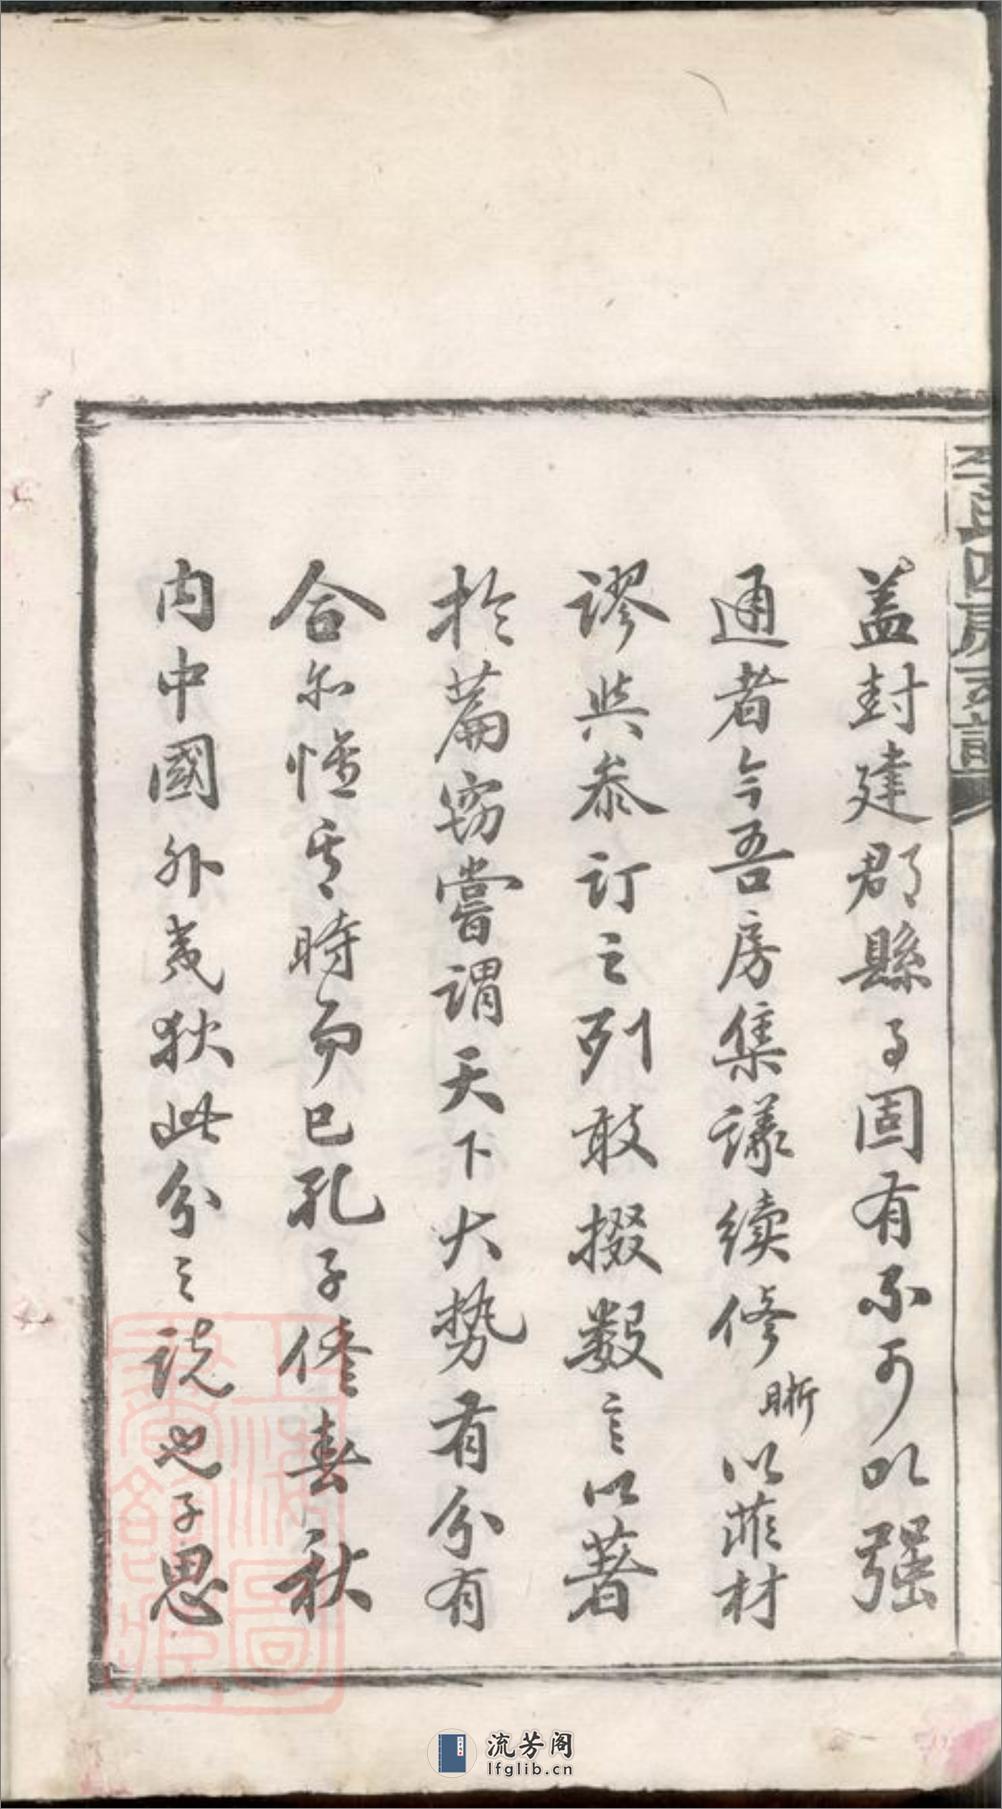 蓋封建郡縣之固有不可以强
通者今吾房集議續修晰以菲材
謬與叅訂之列敢掇数言以著
於篇窃嘗謂天下大勢有分有
合亦惟其時而已孔子修春秋
内中國外夷狄此分之説也子思
流芳阁
lfglib.cn